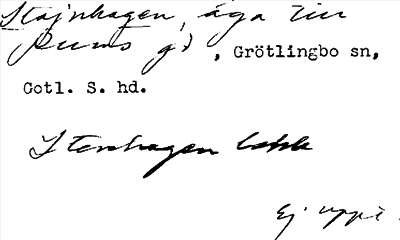 Stajnhagen, äga till
Runs gd, Grötlingbo sn,
Gotl. S. hd.
Stenhagen
Ej uppt.